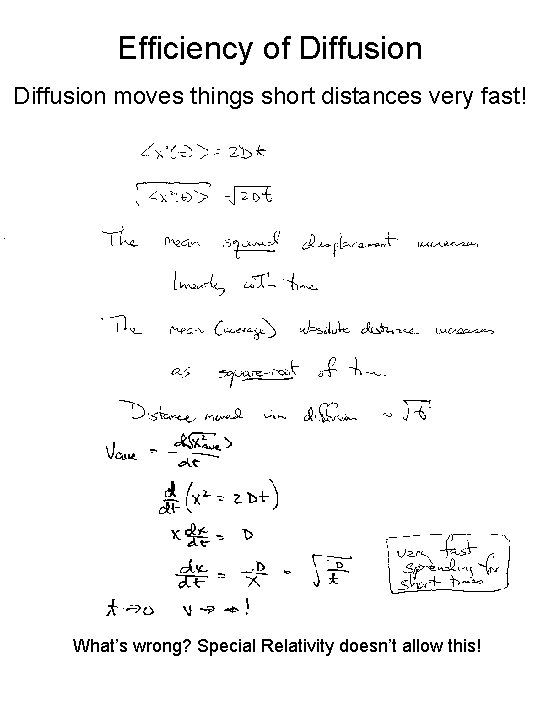 Efficiency of Diffusion
Diffusion moves things short distances very fast!
<x²(t)> = 2Dt
√<x²(t)> = √2Dt
The mean squared displacement increases
linearly with time
The mean (average) absolute distance increases
as square-root of time.
Distance moved via diffusion ~ √t
Vave = d√<x²ave> / dt
d/dt (x² = 2Dt)
x dx/dt = D
dx/dt = D/x = √D/t
very fast
spreading for
short times
t → 0 v → ∞!
What's wrong? Special Relativity doesn't allow this!